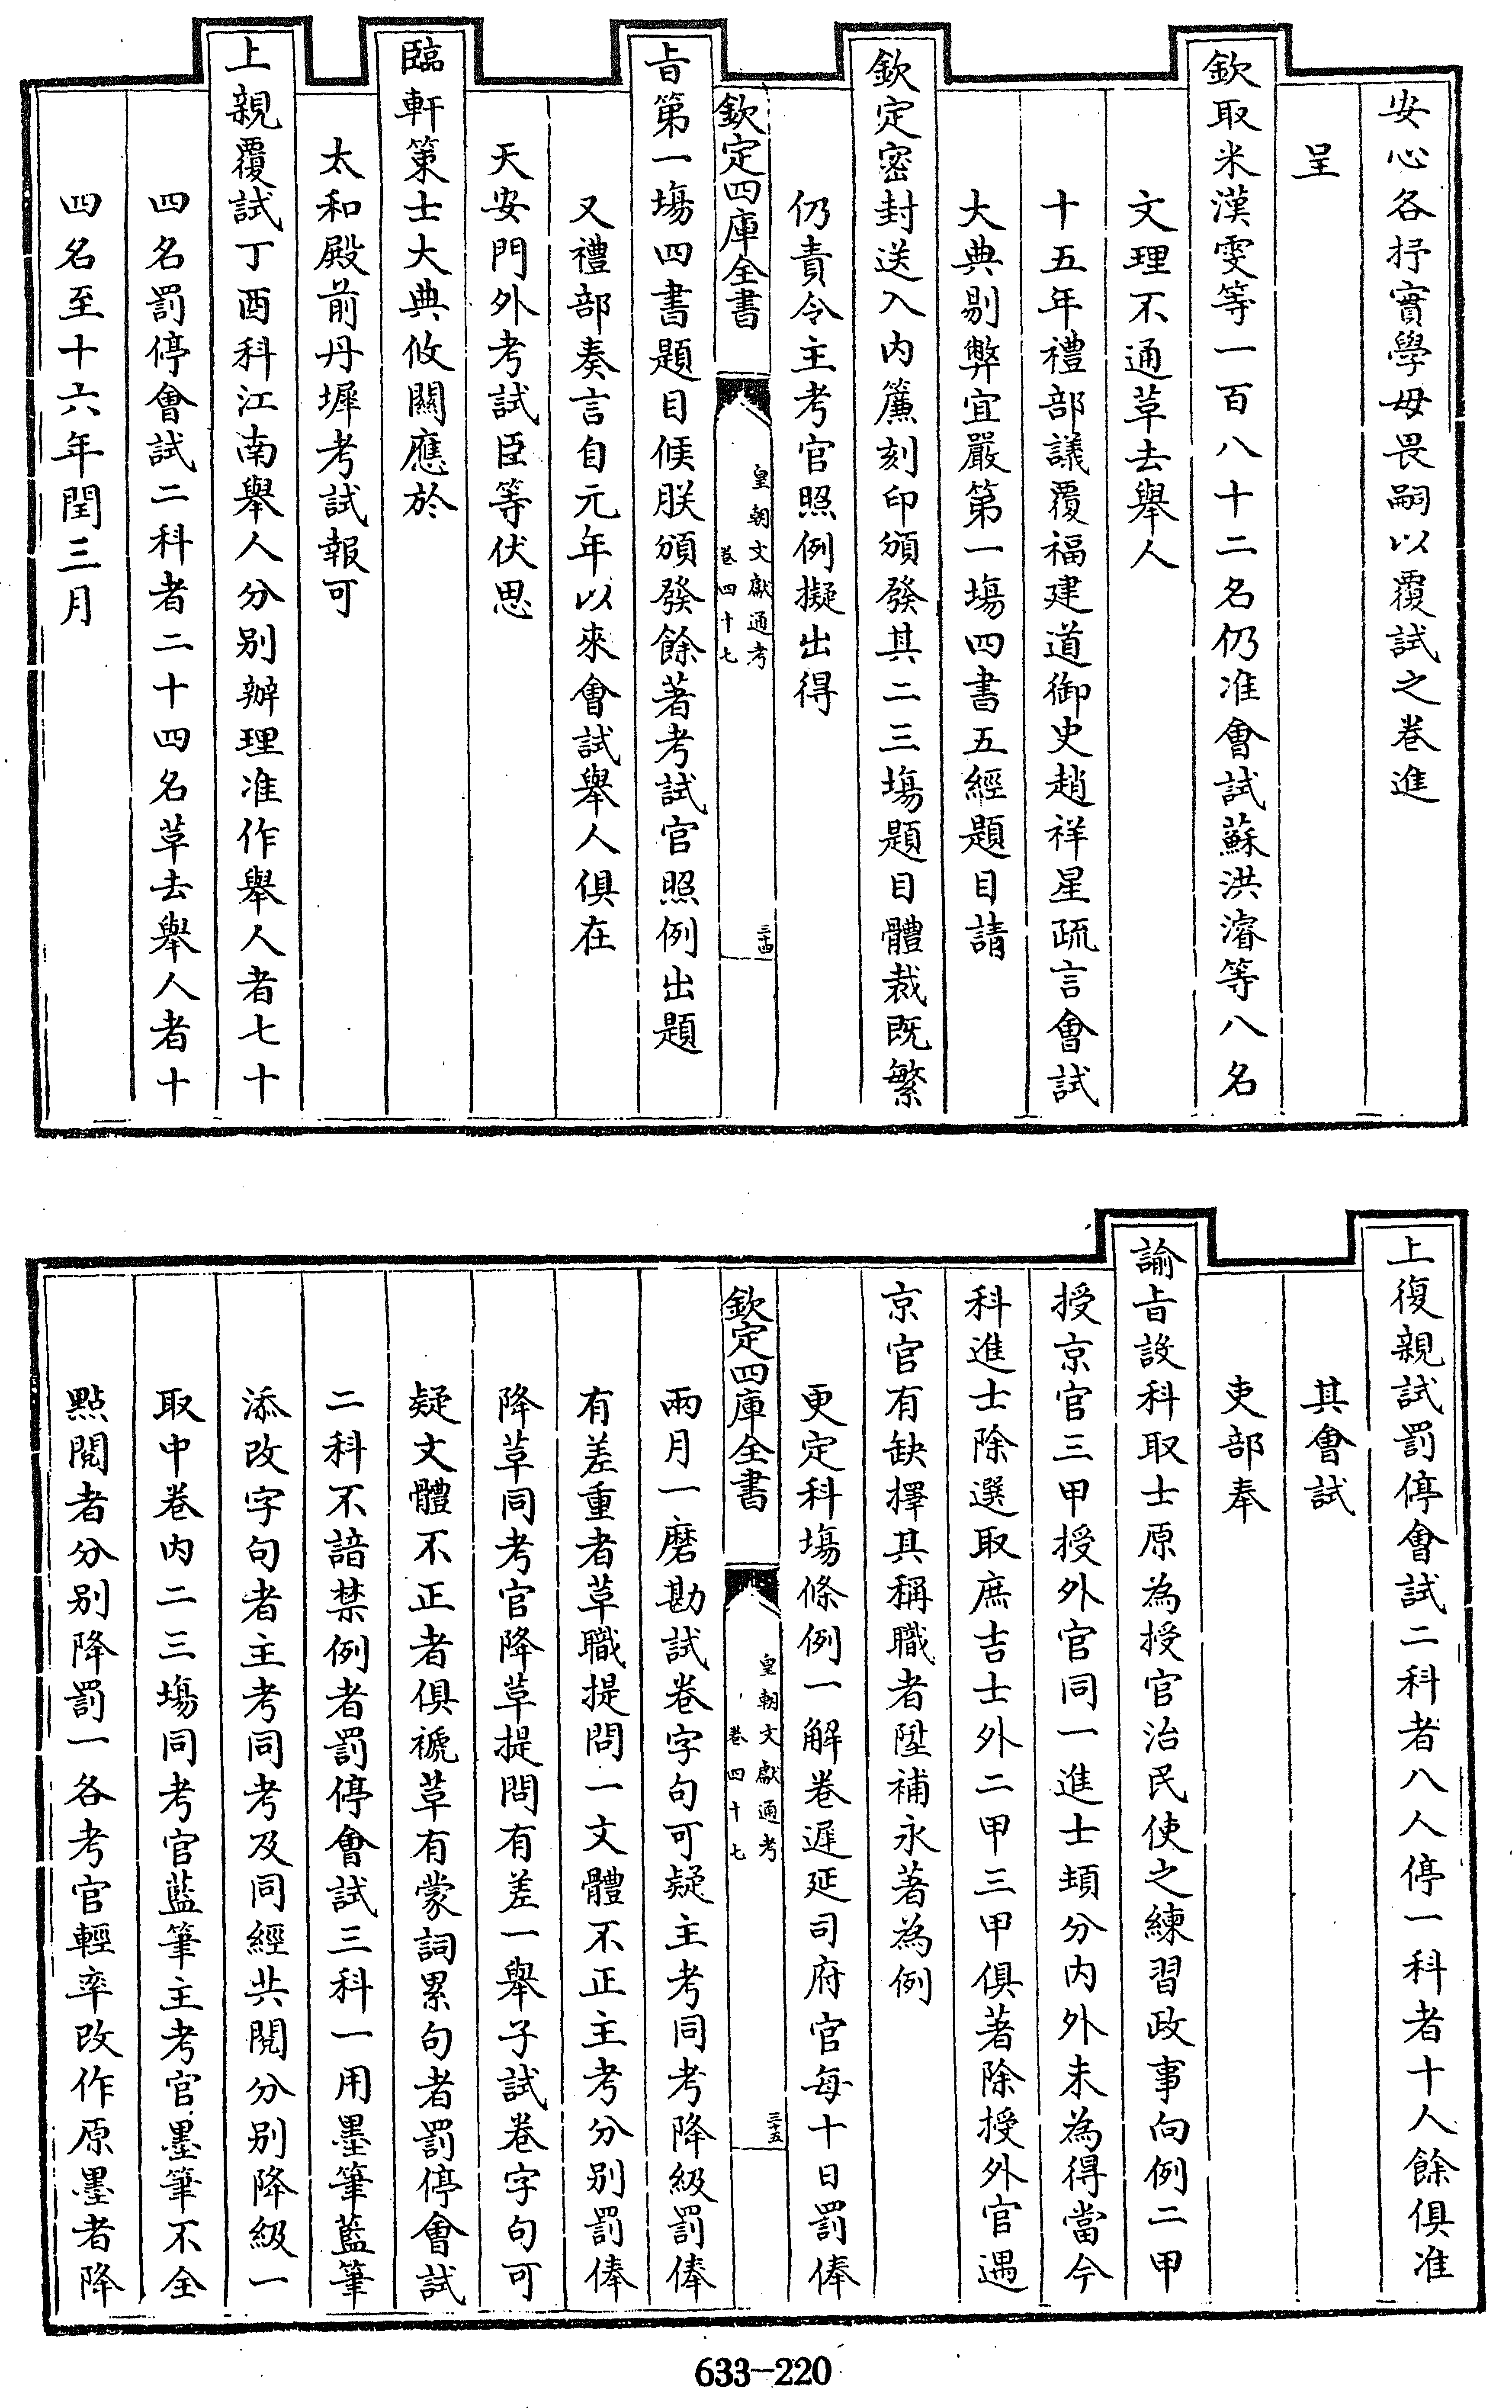 安心各抒實學毋畏嗣以覆試之卷進
呈
欽取米漢雯等一百八十二名仍准會試蘇洪濬等八名
文理不通革去舉人
十五年禮部議覆福建道御史趙祥星疏言會試
大典剔弊宜嚴第一場四書五經題目請
欽定密封送入内簾刻印頒發其二三場題目體裁既繁
仍責令主考官照例擬出得
欽定四庫全書
皇朝文獻通考
卷四十七
三十四
旨第一場四書題目候朕頒發餘著考試官照例出題
又禮部奏言自元年以來會試舉人俱在
天安門外考試臣等伏思
臨軒策士大典攸關應於
太和殿前丹墀考試報可
上親覆試丁酉科江南舉人分别辦理准作舉人者七十
四名罰停會試二科者二十四名革去舉人者十
四名至十六年閏三月
上復親試罰停會試二科者八人停一科者十人餘俱准
其會試
吏部奉
諭旨設科取士原為授官治民使之練習政事向例二甲
授京官三甲授外官同一進士頓分内外未為得當今
科進士除選取庶吉士外二甲三甲俱著除授外官遇
京官有缺擇其稱職者陞補永著為例
更定科場條例一解卷遲延司府官每十日罰俸
欽定四庫全書
皇朝文獻通考
卷四十七
三十五
兩月一磨勘試卷字句可疑主考同考降級罰俸
有差重者革職提問一文體不正主考分别罰俸
降革同考官降革提問有差一舉子試卷字句可
疑文體不正者俱褫革有蒙詞累句者罰停會試
二科不諳禁例者罰停會試三科一用墨筆藍筆
添改字句者主考同考及同經共閱分别降級一
取中卷内二三場同考官藍筆主考官墨筆不全
點閱者分别降罰一各考官輕率改作原墨者降
633-220